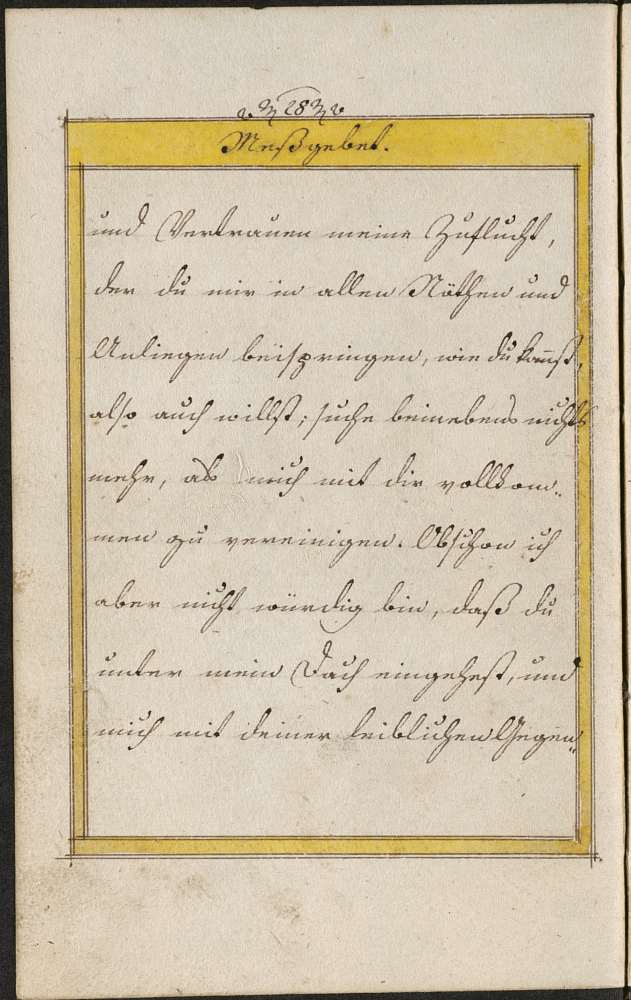 28
Meßgebet.
und Vertrauen meine Zuflucht,
der du mir in allen Nöthen und
Anliegen beispringen, wie du kannst,
also auch willst; suche beinebens nichts
mehr, als mich mit dir vollkom-
men zu vereinigen. Obschon ich
aber nicht würdig bin, daß du
unter mein Dach eingehest, und
mich mit deiner leiblichen Gegen-